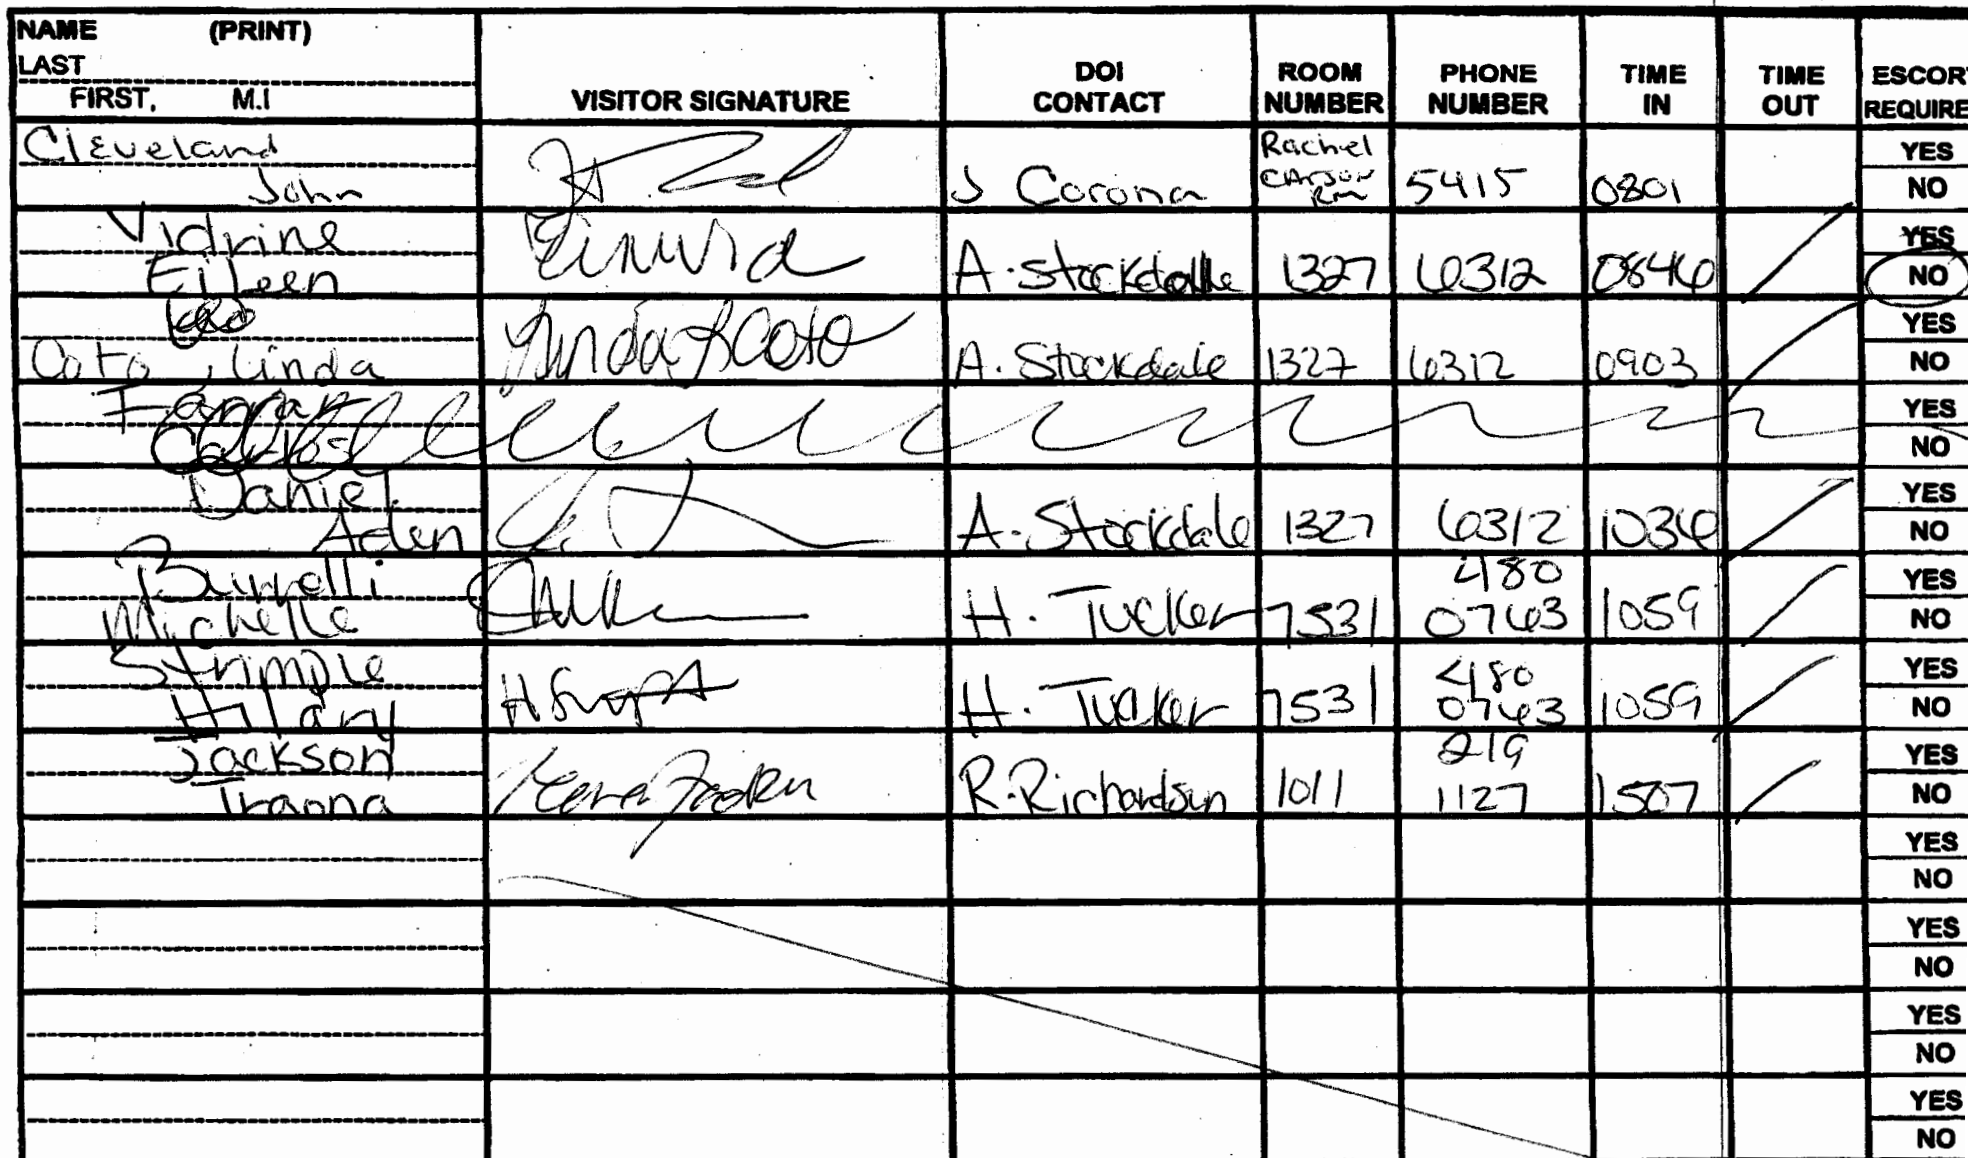 NAME (PRINT)
LAST
FIRST, M.I
VISITOR SIGNATURE
DOI CONTACT
ROOM NUMBER
PHONE NUMBER
TIME IN
TIME OUT
ESCORT REQUIRE
Cleveland
John
J Corona
Rachel
Carson
Rm
5415
0801
YES
NO
Vidrine
Eileen
A. Stockdale
1327
6312
0846
YES
NO
Coto, Linda
Linda Coto
A. Stockdale
1327
6312
0903
YES
NO
Farrar
Carlos
YES
NO
Daniel
Aden
A. Stockdale
1327
6312
1036
YES
NO
Burrelli
Michelle
H. Tucker
7531
480
0763
1059
YES
NO
Strimple
Hilary
H. Tucker
7531
480
0763
1059
YES
NO
Jackson
R. Richardson
1011
219
1127
1507
YES
NO
YES
NO
YES
NO
YES
NO
YES
NO